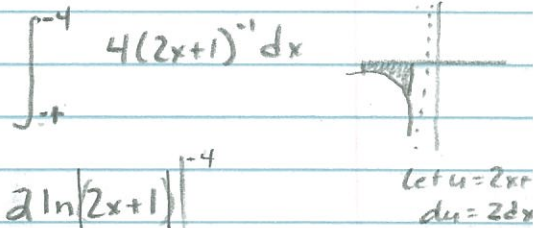 ∫ -4 -t 4(2x+1)⁻¹ dx
2 ln|2x+1| |-4
let u = 2x+
du = 2dx